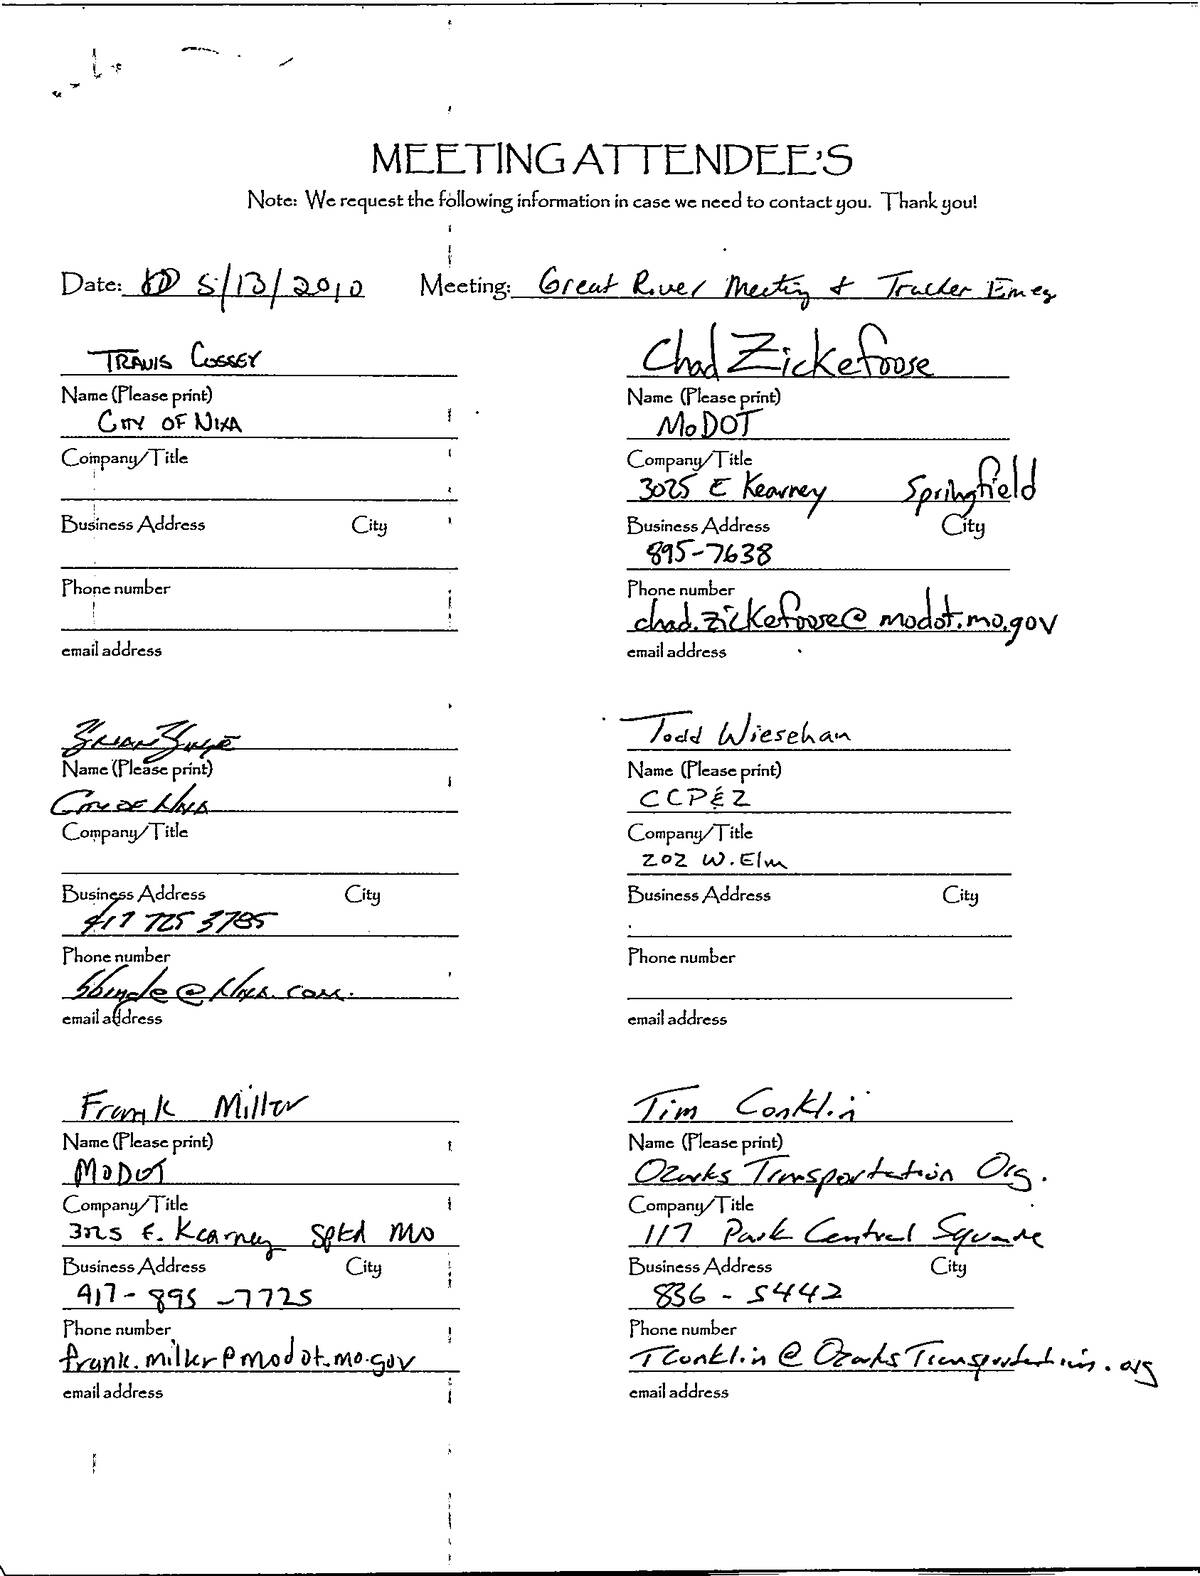 MEETING ATTENDEE'S
Note: We request the following information in case we need to contact you. Thank you!
Date: 5/13/2010 Meeting: Great River Meeting & Tracker
TRAVIS COSSEY
Name (Please print)
CITY OF NIXA
Company/Title
Business Address City
Phone number
email address
Chad Zickefoose
Name (Please print)
MoDOT
Company/Title
3025 E Kearney Springfield
Business Address City
895-7638
Phone number
chad.zickefoose@modot.mo.gov
email address
BRIAN
Name (Please print)
CITY OF NIXA
Company/Title
Business Address City
417 725 3785
Phone number
email address
Todd Wiesehan
Name (Please print)
CCP&Z
Company/Title
202 W. Elm
Business Address City
Phone number
email address
Frank Miller
Name (Please print)
MoDOT
Company/Title
3025 E. Kearney Spfd MO
Business Address City
417-895-7725
Phone number
frank.miller@modot.mo.gov
email address
Tim Conklin
Name (Please print)
Ozarks Transportation Org.
Company/Title
117 Park Central Square
Business Address City
836-5442
Phone number
TConklin@OzarksTransportation.org
email address